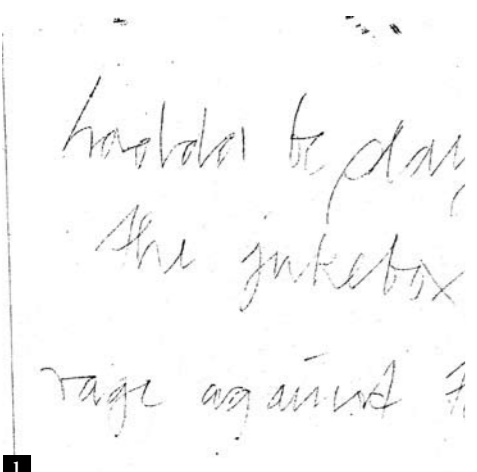 hadda be play
the jukebox
rage against
1